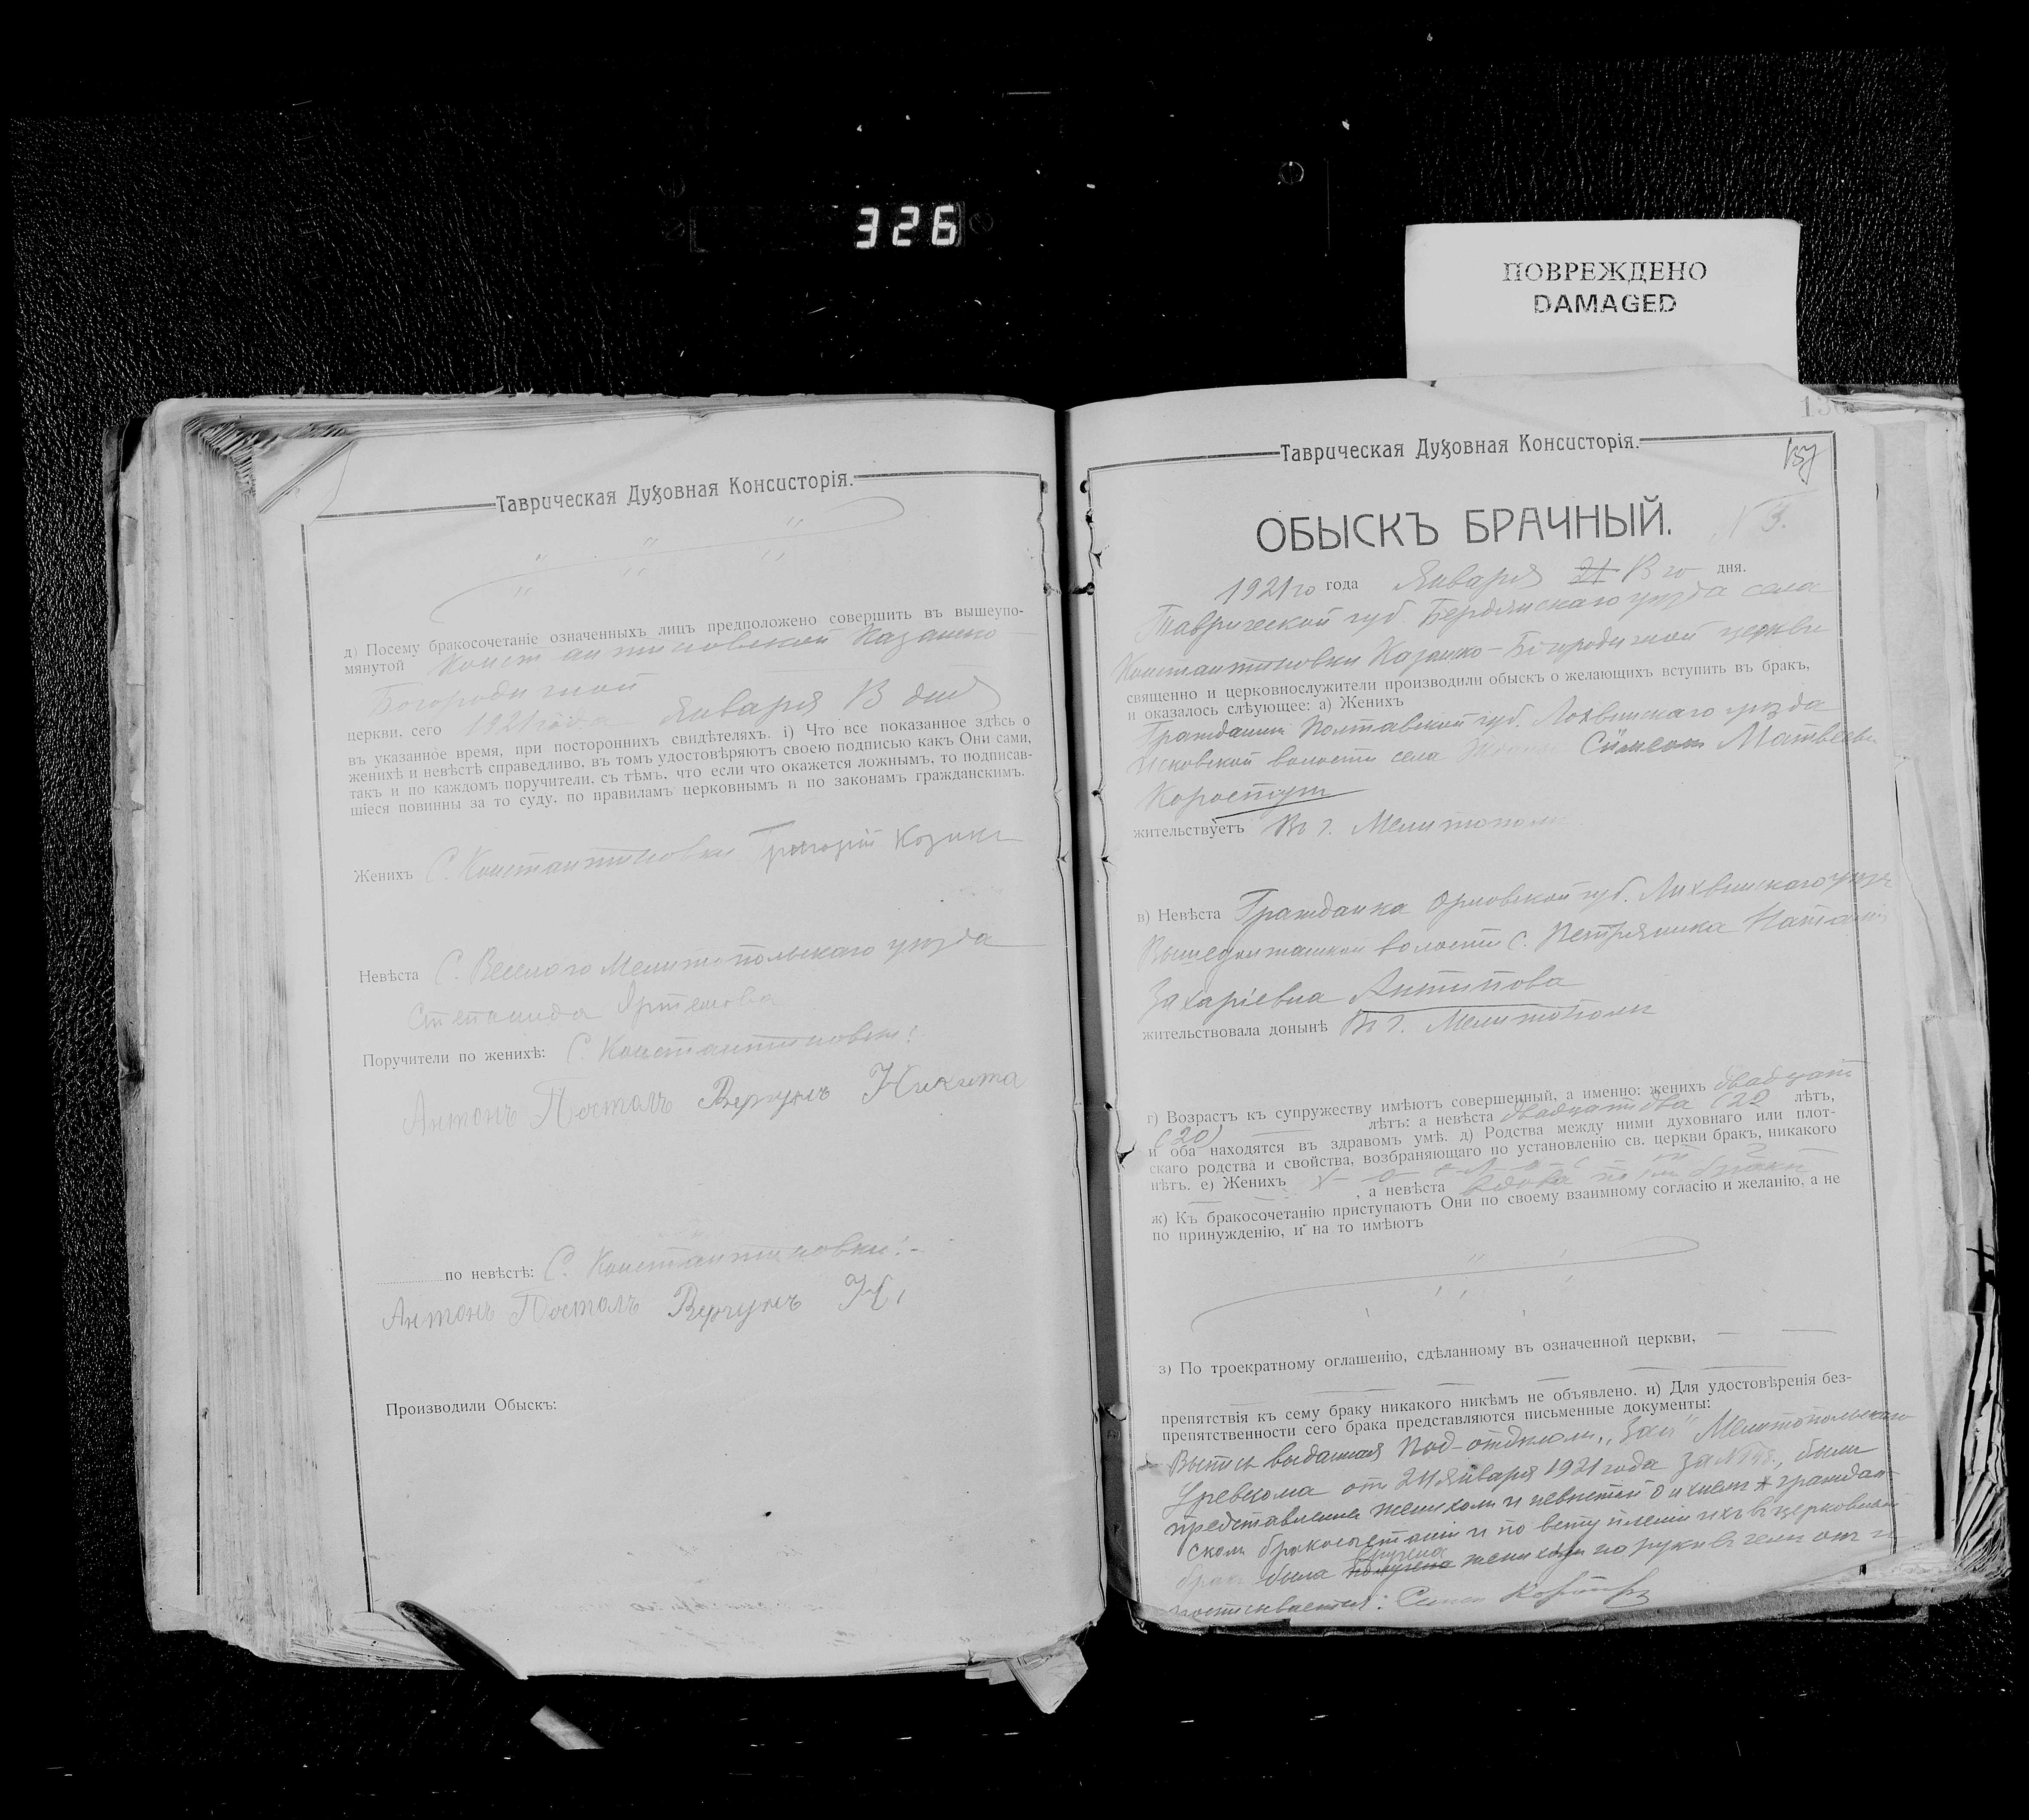 326
ПОВРЕЖДЕНО
DAMAGED
Таврическая Духовная Консисторія.
д) Посему бракосочетаніе означенныхъ лицъ предположено совершить въ вышеупо-
мянутой Константиновской Казанско-
Богородичной
церкви, сего 1921 года Января В дня
въ указанное время, при постороннихъ свидѣтеляхъ. і) Что все показанное здѣсь о
женихѣ и невѣстѣ справедливо, въ томъ удостовѣряютъ своею подписью какъ Они сами,
такъ и по каждомъ поручители, съ тѣмъ, что если что окажется ложнымъ, то подписав-
шіеся повинны за то суду, по правиламъ церковнымъ и по законамъ гражданскимъ.
Женихъ С. Константиновки Григорій
Невѣста С. Веселого Мелитопольскаго уѣзда
Степанида Артемова
Поручители по женихѣ: С. Константиновки:
Антонъ Постолъ Вергунъ Никита
по невѣстѣ: С. Константиновки:-
Антонъ Постолъ Вергунъ Н,
Производили Обыскъ:
Таврическая Духовная Консисторія.
ОБЫСКЪ БРАЧНЫЙ. № 3.
1921 го года Января 21 В го дня.
Таврической губ. Бердянскаго уѣзда села
Константиновки Казанско-Богородичной церкви
священно и церковнослужители производили обыскъ о желающихъ вступить въ бракъ,
и оказалось слѣующее: а) Женихъ
Гражданинъ Полтавской губ. Лохвицкаго уѣзда
волости села Матвѣевъ
жительствуетъ Въ г. Мелитополѣ
в) Невѣста Гражданка Орловской губ. уѣзда
волости с. Наталія
Захаріевна Антипова
жительствовала донынѣ Въ г. Мелитополѣ
г) Возрастъ къ супружеству имѣютъ совершенный, а именно: женихъ двадцать
(20) лѣтъ: а невѣста двадцати два (22 лѣтъ,
и оба находятся въ здравомъ умѣ. д) Родства между ними духовнаго или плот-
скаго родства и свойства, возбраняющаго по установленію св. церкви бракъ, никакого
нѣтъ. е) Женихъ , а невѣста вдова
ж) Къ бракосочетанію приступаютъ Они по своему взаимному согласію и желанію, а не
по принужденію, и на то имѣютъ
з) По троекратному оглашенію, сдѣланному въ означенной церкви,
препятствія къ сему браку никакого никѣмъ не объявлено. и) Для удостовѣренія без-
препятственности сего брака представляются письменные документы:
Выпись выданная Под-отдѣломъ „Загс" Мелитопольскаго
Уревкома отъ 21 Января 1921 года за № , были
представлена женихомъ и невѣстой о ихнемъ граждан-
скомъ бракосочетаніи и по вступленіи ихъ въ церковный
бракъ была вручена жениху на руки в чемъ онъ и
росписывается: